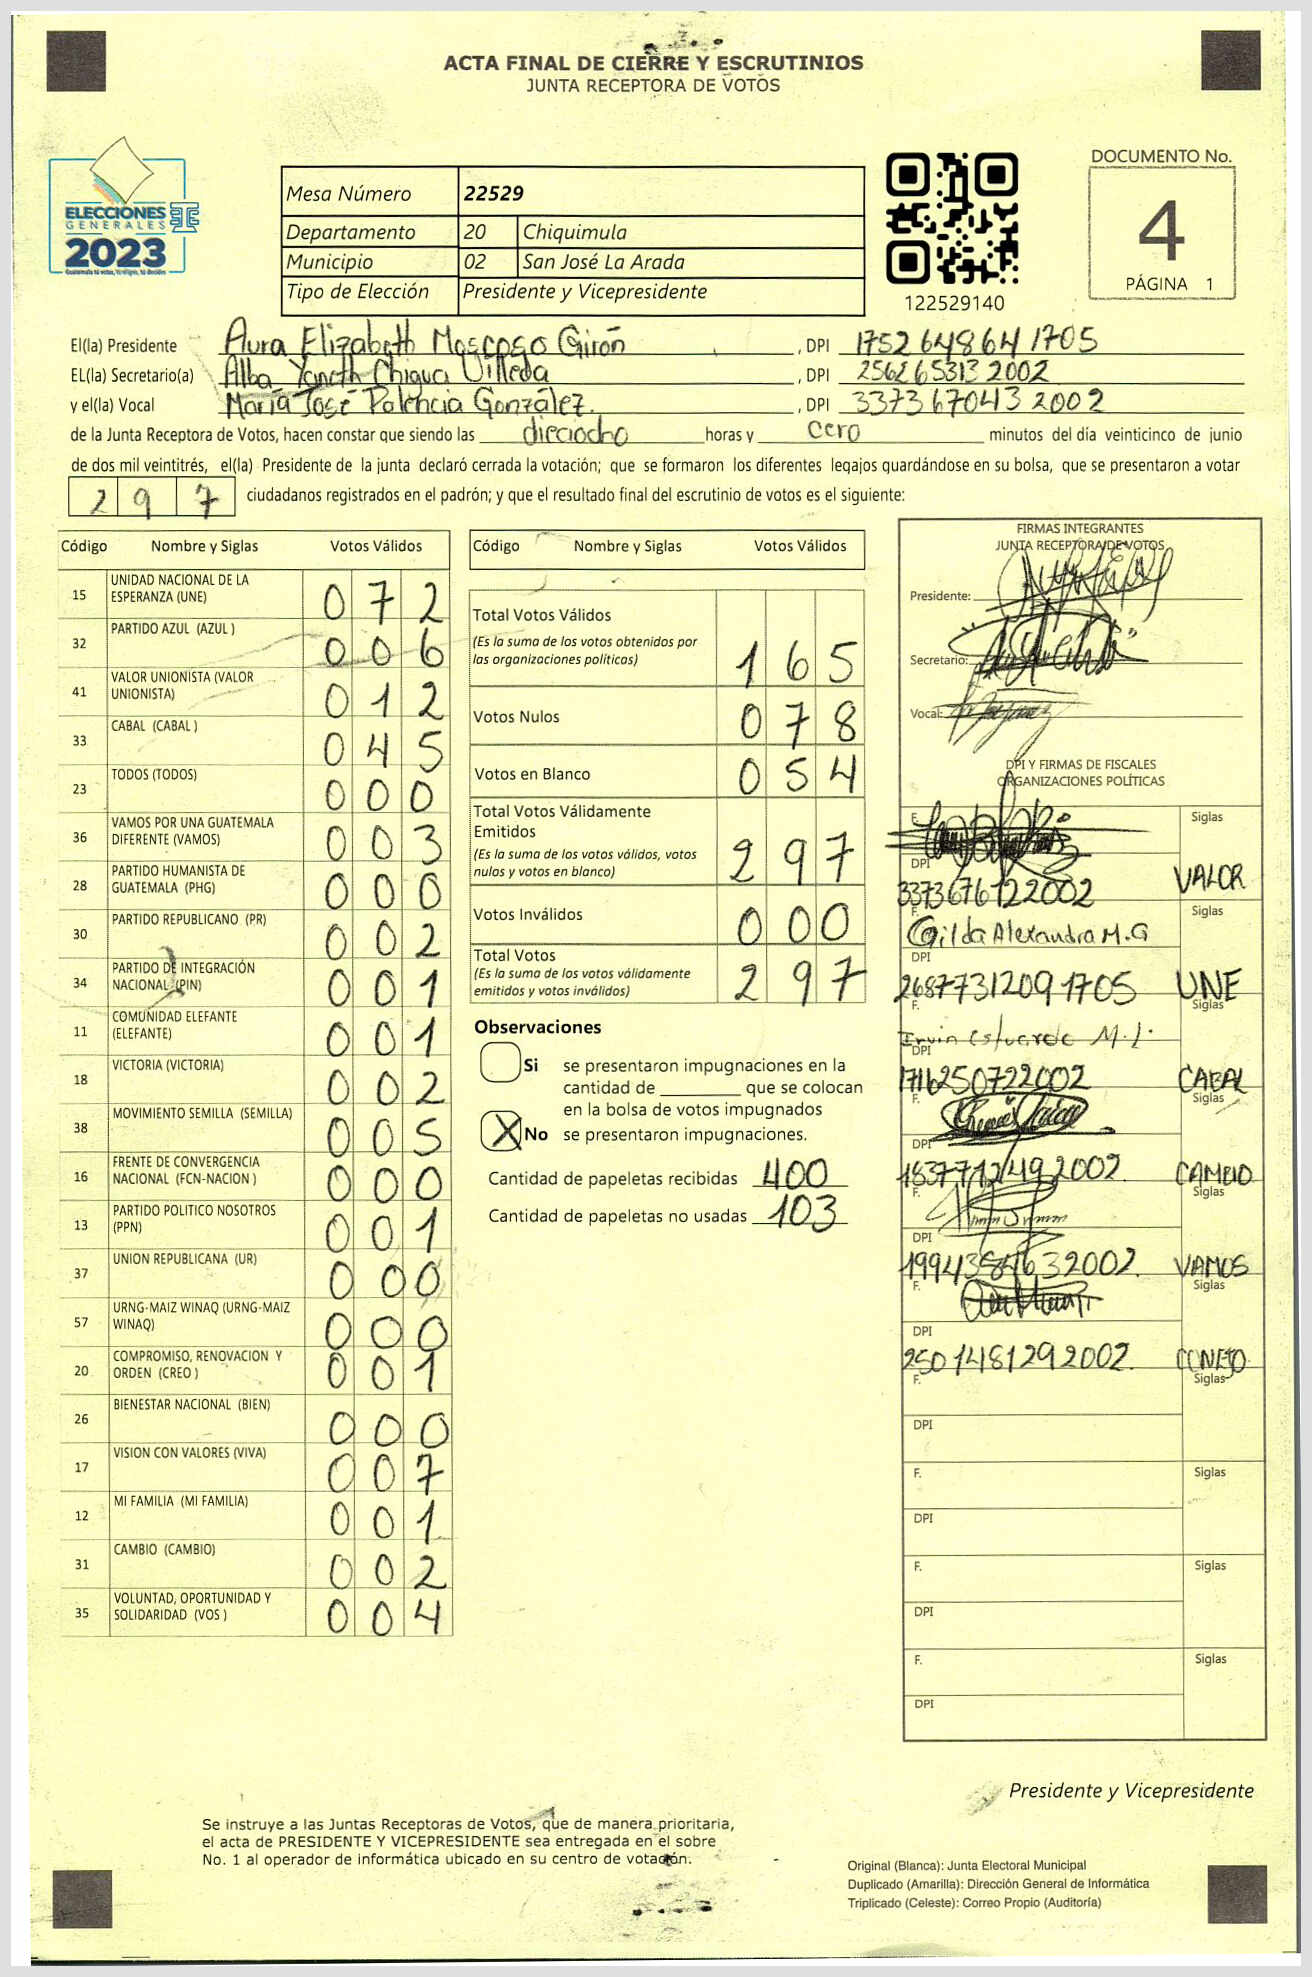 ACTA FINAL DE CIERRE Y ESCRUTINIOS
JUNTA RECEPTORA DE VOTOS
ELECCIONES
GENERALES
2023
Mesa Número 22529
Departamento 20 Chiquimula
Municipio 02 San José La Arada
Tipo de Elección Presidente y Vicepresidente
122529140
DOCUMENTO No.
4
PÁGINA 1
El(la) Presidente Aura Elizabeth Moscoso Girón , DPI 1752 64864 1705
EL(la) Secretario(a) Alba Yaneth Chigua Villeda , DPI 256265313 2002
y el(la) Vocal María José Palencia González. , DPI 337367043 2002
de la Junta Receptora de Votos, hacen constar que siendo las dieciocho horas y cero minutos del día veinticinco de junio
de dos mil veintitrés, el(la) Presidente de la junta declaró cerrada la votación; que se formaron los diferentes legajos guardándose en su bolsa, que se presentaron a votar
2 9 7 ciudadanos registrados en el padrón; y que el resultado final del escrutinio de votos es el siguiente:
Código Nombre y Siglas Votos Válidos
15 UNIDAD NACIONAL DE LA ESPERANZA (UNE) 0 7 2
32 PARTIDO AZUL (AZUL ) 0 0 6
41 VALOR UNIONISTA (VALOR UNIONISTA) 0 1 2
33 CABAL (CABAL ) 0 4 5
23 TODOS (TODOS) 0 0 0
36 VAMOS POR UNA GUATEMALA DIFERENTE (VAMOS) 0 0 3
28 PARTIDO HUMANISTA DE GUATEMALA (PHG) 0 0 0
30 PARTIDO REPUBLICANO (PR) 0 0 2
34 PARTIDO DE INTEGRACIÓN NACIONAL (PIN) 0 0 1
11 COMUNIDAD ELEFANTE (ELEFANTE) 0 0 1
18 VICTORIA (VICTORIA) 0 0 2
38 MOVIMIENTO SEMILLA (SEMILLA) 0 0 5
16 FRENTE DE CONVERGENCIA NACIONAL (FCN-NACION ) 0 0 0
13 PARTIDO POLITICO NOSOTROS (PPN) 0 0 1
37 UNION REPUBLICANA (UR) 0 0 0
57 URNG-MAIZ WINAQ (URNG-MAIZ WINAQ) 0 0 0
20 COMPROMISO, RENOVACION Y ORDEN (CREO ) 0 0 1
26 BIENESTAR NACIONAL (BIEN) 0 0 0
17 VISION CON VALORES (VIVA) 0 0 7
12 MI FAMILIA (MI FAMILIA) 0 0 1
31 CAMBIO (CAMBIO) 0 0 2
35 VOLUNTAD, OPORTUNIDAD Y SOLIDARIDAD (VOS ) 0 0 4
Código Nombre y Siglas Votos Válidos
Total Votos Válidos
(Es la suma de los votos obtenidos por
las organizaciones políticas) 1 6 5
Votos Nulos 0 7 8
Votos en Blanco 0 5 4
Total Votos Válidamente
Emitidos
(Es la suma de los votos válidos, votos
nulos y votos en blanco) 2 9 7
Votos Inválidos 0 0 0
Total Votos
(Es la suma de los votos válidamente
emitidos y votos inválidos) 2 9 7
Observaciones
Si se presentaron impugnaciones en la
cantidad de ________ que se colocan
en la bolsa de votos impugnados
X No se presentaron impugnaciones.
Cantidad de papeletas recibidas 400
Cantidad de papeletas no usadas 103
FIRMAS INTEGRANTES
JUNTA RECEPTORA DE VOTOS
Presidente:
Secretario:
Vocal:
DPI Y FIRMAS DE FISCALES
ORGANIZACIONES POLÍTICAS
F. Siglas
DPI 337367612 2002 VALOR
F. Gilda Alexandra M.G Siglas
DPI 26877312091705 UNE
F. Irvin Estuardo M.L. Siglas
DPI 1716250722002 CABAL
F. Siglas
DPI 1837712492002. CAMBIO
F. Siglas
DPI 1994384632002. VAMOS
F. Siglas
DPI 2501481292002.
F. Siglas
DPI
F. Siglas
DPI
F. Siglas
DPI
F. Siglas
DPI
Presidente y Vicepresidente
Se instruye a las Juntas Receptoras de Votos, que de manera prioritaria,
el acta de PRESIDENTE Y VICEPRESIDENTE sea entregada en el sobre
No. 1 al operador de informática ubicado en su centro de votación.
Original (Blanca): Junta Electoral Municipal
Duplicado (Amarilla): Dirección General de Informática
Triplicado (Celeste): Correo Propio (Auditoría)